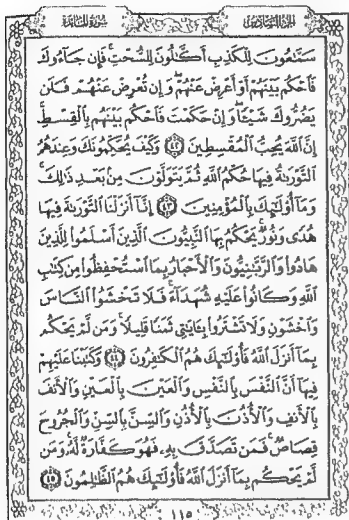 الجزء السادس سورة المائدة
سَمَّٰعُونَ لِلۡكَذِبِ أَكَّٰلُونَ لِلسُّحۡتِۚ فَإِن جَآءُوكَ
فَٱحۡكُم بَيۡنَهُمۡ أَوۡ أَعۡرِضۡ عَنۡهُمۡۖ وَإِن تُعۡرِضۡ عَنۡهُمۡ فَلَن
يَضُرُّوكَ شَيۡـٔٗاۖ وَإِنۡ حَكَمۡتَ فَٱحۡكُم بَيۡنَهُم بِٱلۡقِسۡطِۚ
إِنَّ ٱللَّهَ يُحِبُّ ٱلۡمُقۡسِطِينَ ٤٢ وَكَيۡفَ يُحَكِّمُونَكَ وَعِندَهُمُ
ٱلتَّوۡرَىٰةُ فِيهَا حُكۡمُ ٱللَّهِ ثُمَّ يَتَوَلَّوۡنَ مِنۢ بَعۡدِ ذَٰلِكَۚ
وَمَآ أُوْلَٰٓئِكَ بِٱلۡمُؤۡمِنِينَ ٤٣ إِنَّآ أَنزَلۡنَا ٱلتَّوۡرَىٰةَ فِيهَا
هُدٗى وَنُورٞۚ يَحۡكُمُ بِهَا ٱلنَّبِيُّونَ ٱلَّذِينَ أَسۡلَمُواْ لِلَّذِينَ
هَادُواْ وَٱلرَّبَّٰنِيُّونَ وَٱلۡأَحۡبَارُ بِمَا ٱسۡتُحۡفِظُواْ مِن كِتَٰبِ
ٱللَّهِ وَكَانُواْ عَلَيۡهِ شُهَدَآءَۚ فَلَا تَخۡشَوُاْ ٱلنَّاسَ
وَٱخۡشَوۡنِ وَلَا تَشۡتَرُواْ بِـَٔايَٰتِي ثَمَنٗا قَلِيلٗاۚ وَمَن لَّمۡ يَحۡكُم
بِمَآ أَنزَلَ ٱللَّهُ فَأُوْلَٰٓئِكَ هُمُ ٱلۡكَٰفِرُونَ ٤٤ وَكَتَبۡنَا عَلَيۡهِمۡ
فِيهَآ أَنَّ ٱلنَّفۡسَ بِٱلنَّفۡسِ وَٱلۡعَيۡنَ بِٱلۡعَيۡنِ وَٱلۡأَنفَ
بِٱلۡأَنفِ وَٱلۡأُذُنَ بِٱلۡأُذُنِ وَٱلسِّنَّ بِٱلسِّنِّ وَٱلۡجُرُوحَ
قِصَاصٞۚ فَمَن تَصَدَّقَ بِهِۦ فَهُوَ كَفَّارَةٞ لَّهُۥۚ وَمَن
لَّمۡ يَحۡكُم بِمَآ أَنزَلَ ٱللَّهُ فَأُوْلَٰٓئِكَ هُمُ ٱلظَّٰلِمُونَ ٤٥
١١٥